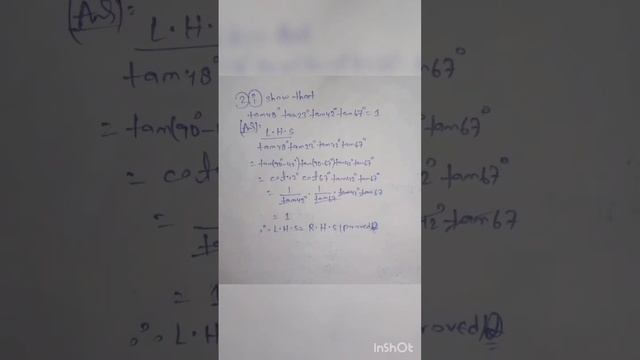 2) i) show that
tan48° tan23° tan42° tan67° = 1
(Ans):
L.H.S
tan48° tan23° tan42° tan67°
= tan(90°-42°) tan(90-67°) tan42° tan67°
= cot42° cot67° tan42° tan67°
= 1/tan42° · 1/tan67 · tan42° tan67
= 1
∴ L.H.S = R.H.S (proved)
InShOt